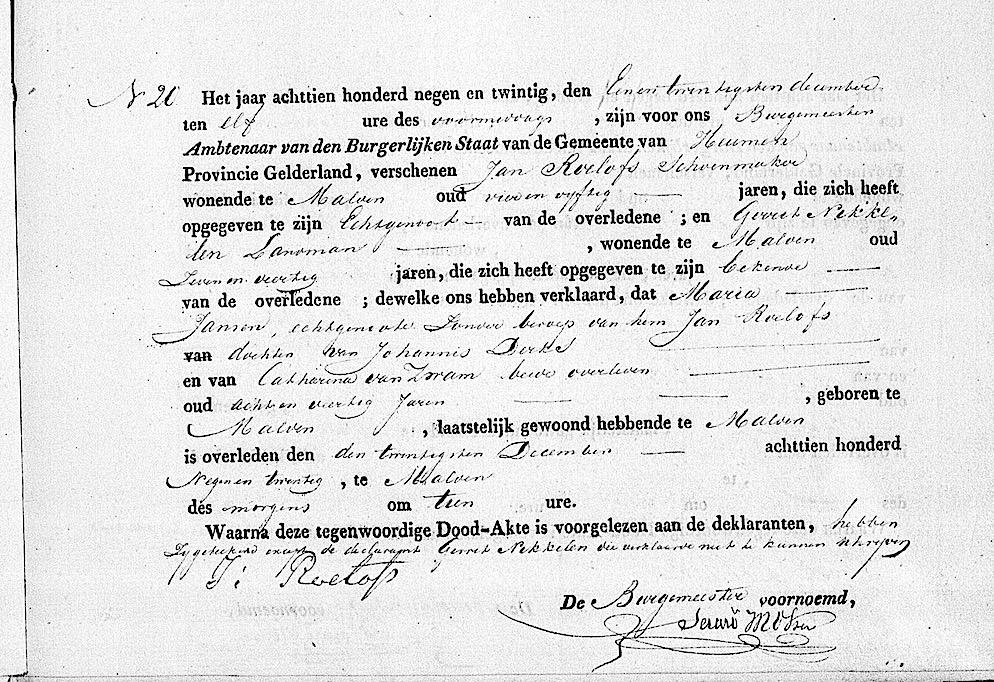 N 20 Het jaar achttien honderd negen en twintig, den Eenen twentigsten december
ten elf ure des voormiddags , zijn voor ons Burgemeester
Ambtenaar van den Burgerlijken Staat van de Gemeente van Heumen
Provincie Gelderland, verschenen Jan Roelofs Schoenmaker
wonende te Malden oud vier en vyftig — jaren, die zich heeft
opgegeven te zijn Echtgenoot — van de overledene ; en Gerret Nekke-
len Landman — , wonende te Malden oud
Zeven en veertig jaren, die zich heeft opgegeven te zijn bekende —
van de overledene ; dewelke ons hebben verklaard, dat Maria —
Jansen, echtgenoote Zonder beroep van hem Jan Roelofs
van dochter van Johannis Derks —
en van Catharina van Zwam beide overleden —
oud acht en veertig Jaren — — , geboren te
Malden , laatstelijk gewoond hebbende te Malden
is overleden den den twentigsten December — achttien honderd
Negen en twentig , te Malden
des morgens om tien ure.
Waarna deze tegenwoordige Dood-Akte is voorgelezen aan de deklaranten, hebben
Zy geteekend except de declarant Gerret Nekkelen die verklaarde niet te kunnen schryven
J: Roelofs
De Burgemeester voornoemd,